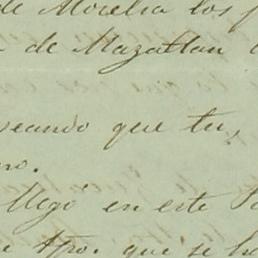 de Morelia los
de Mazatlan
seando que tu,
no.
llegó en este
que se